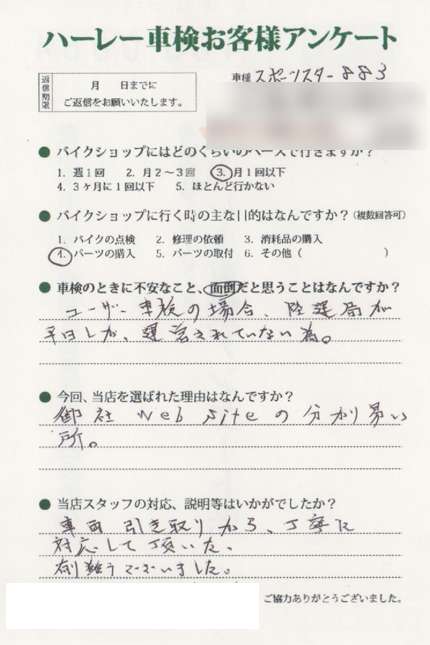 ハーレー車検お客様アンケート
返信期限
月　日までに
ご返信をお願いいたします。
車種 スポーツスター883
● バイクショップにはどのくらいのペースで行きますか？
1. 週1回　2. 月2～3回　3. 月1回以下
4. 3ヶ月に1回以下　5. ほとんど行かない
● バイクショップに行く時の主な目的はなんですか？（複数回答可）
1. バイクの点検　2. 修理の依頼　3. 消耗品の購入
4. パーツの購入　5. パーツの取付　6. その他（　　　　　）
● 車検のときに不安なこと、面倒だと思うことはなんですか？
ユーザー車検の場合、陸運局が
平日しか、運営されていない為。
● 今回、当店を選ばれた理由はなんですか？
御社 Web siteの分かり易い
所。
● 当店スタッフの対応、説明等はいかがでしたか？
車両引き取りから、丁寧に
対応して頂いた、
有難うございました。
ご協力ありがとうございました。